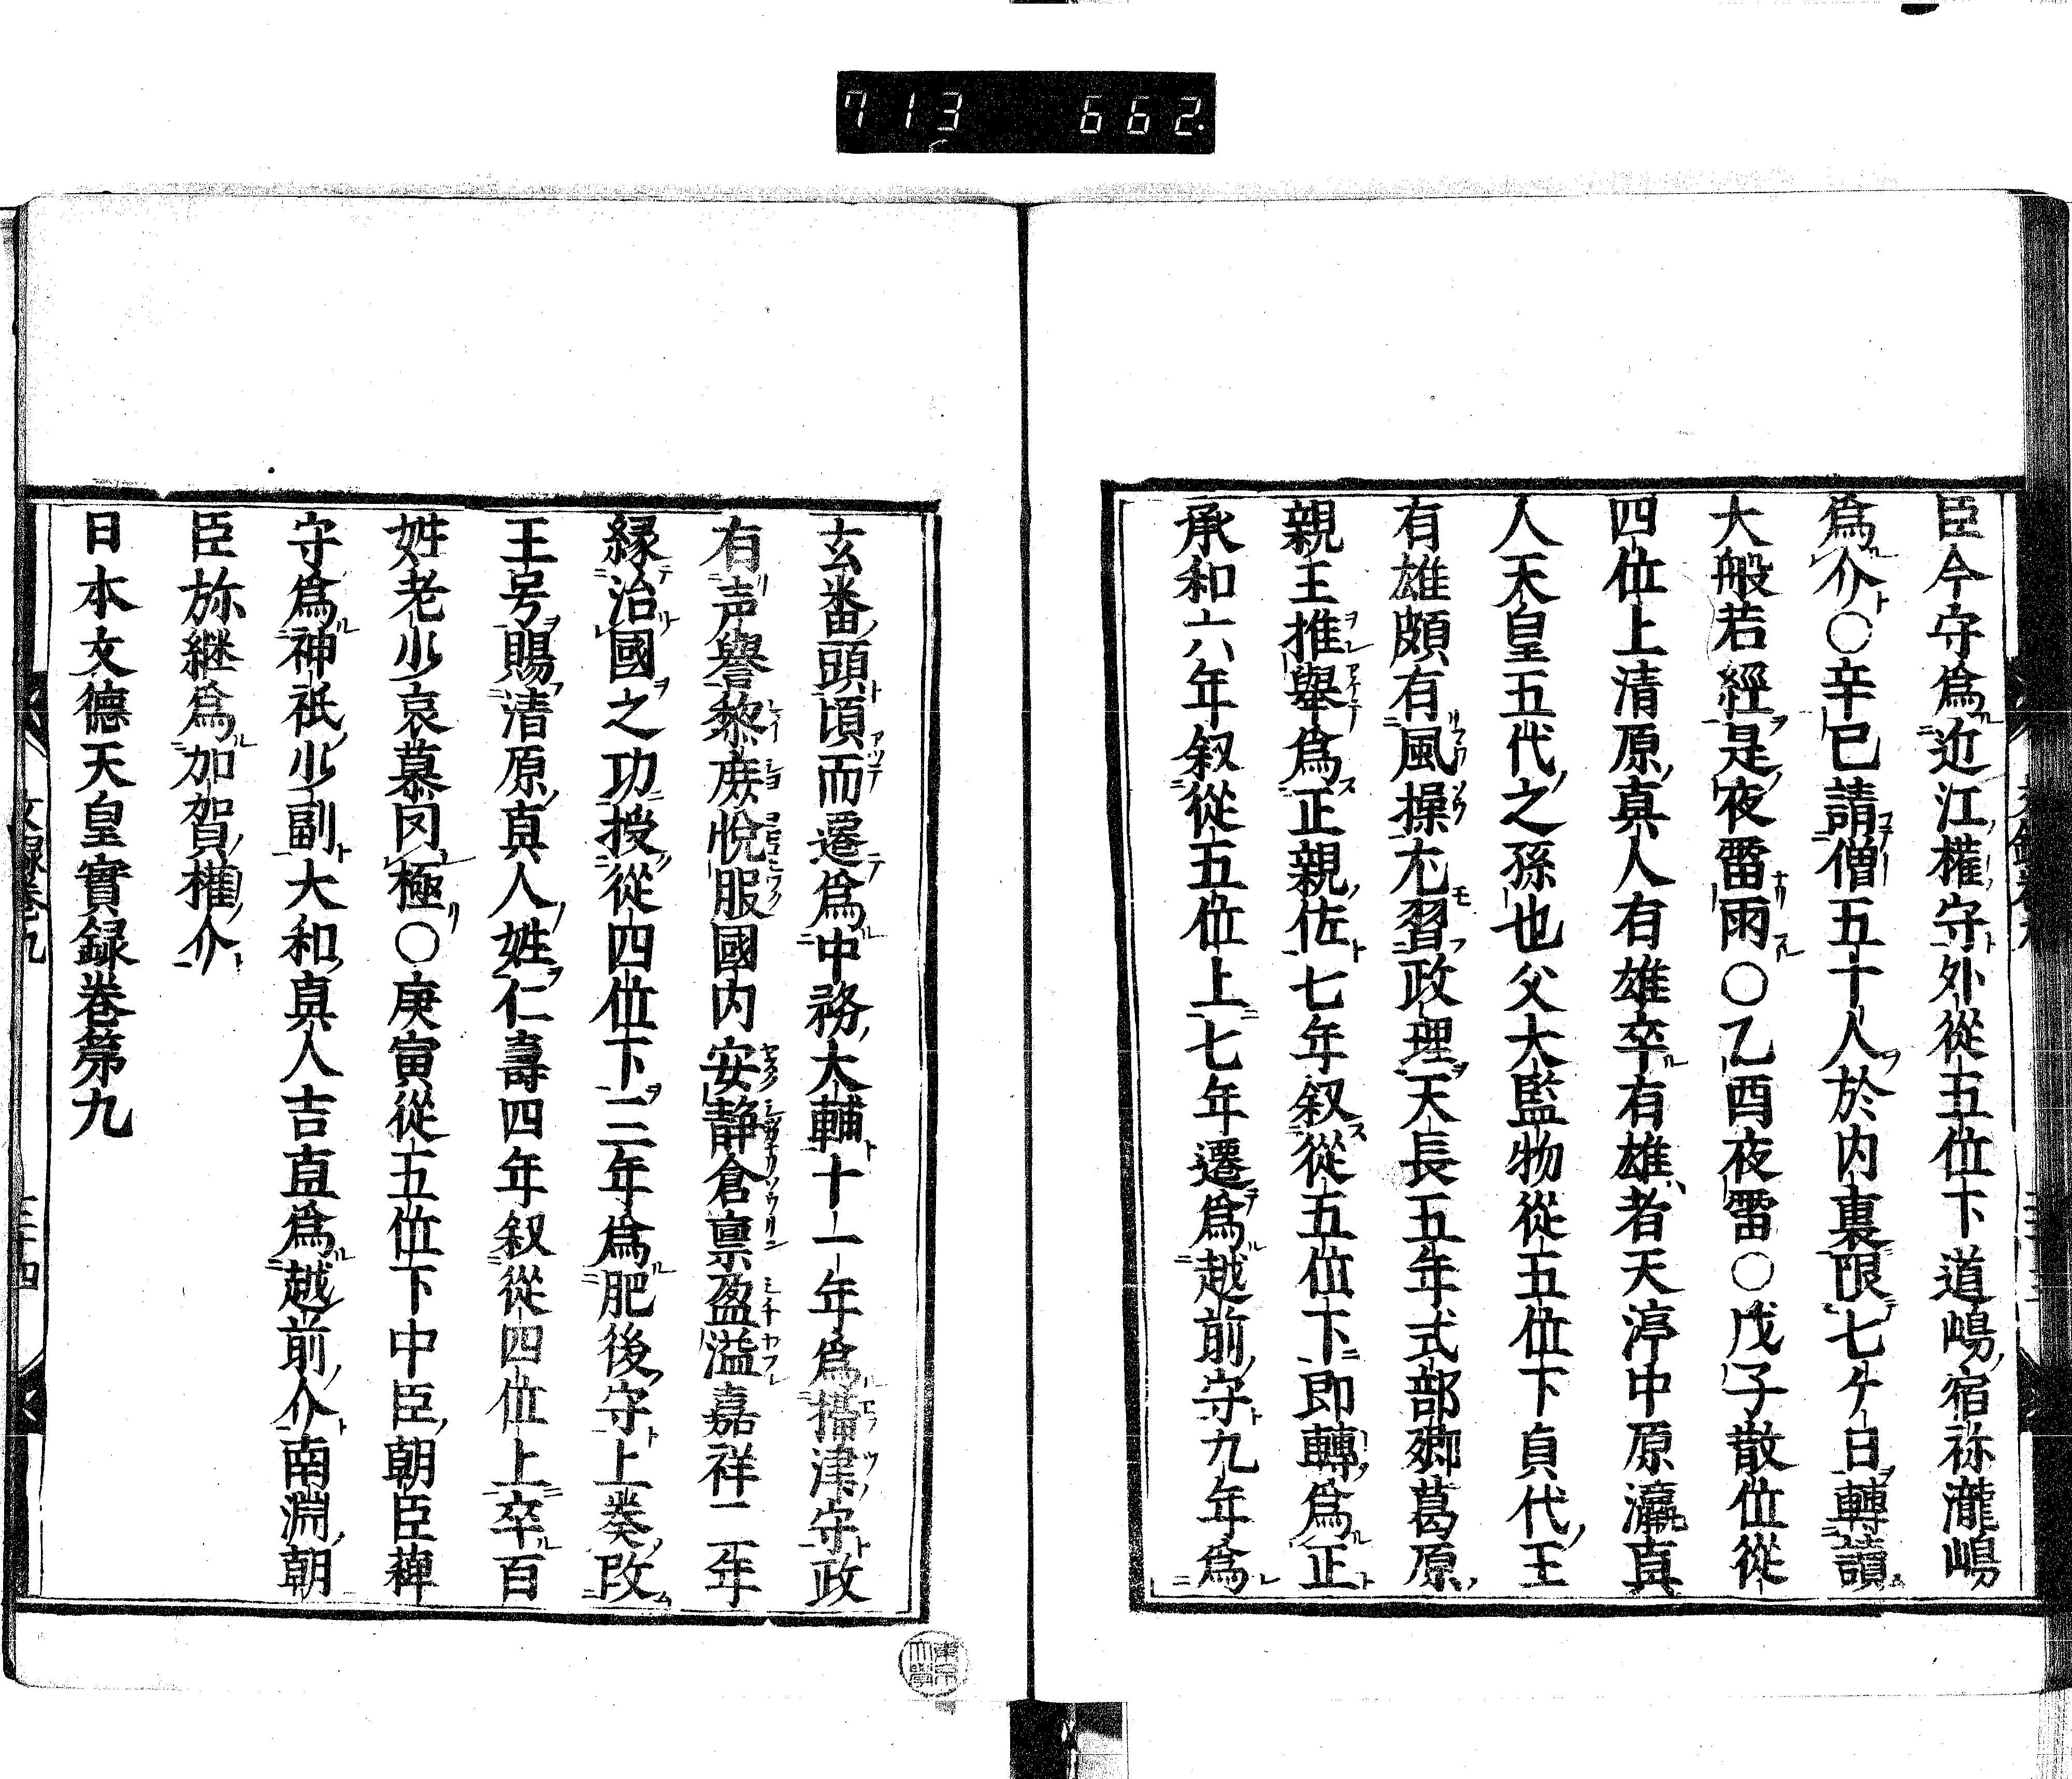 713 662
臣今守爲近江權守外從五位下道嶋宿祢瀧嶋
爲介○辛巳請僧五十人於内裏限七ケ日轉讀
大般若經是夜雷雨○乙酉夜雷○戊子散位從
四位上清原真人有雄卒有雄者天渟中原瀛真
人天皇五代之孫也父大監物從五位下貞代王
有雄頗有風操尤習政理天長五年式部卿葛原
親王推擧爲正親佐七年叙從五位下即轉爲正
承和六年叙從五位上七年遷爲越前守九年爲
玄蕃頭頃而遷爲中務大輔十一年爲攝津守政
有声譽黎庶悦服國内安静倉禀盈溢嘉祥二年
縁治國之功授從四位下三年爲肥後守上表改
王号賜清原真人姓仁壽四年叙從四位上卒百
姓老少哀慕罔極○庚寅從五位下中臣朝臣薭
守爲神祇少副大和真人吉直爲越前介南淵朝
臣祢継爲加賀權介
日本文德天皇實録卷第九
文録卷九
三十四